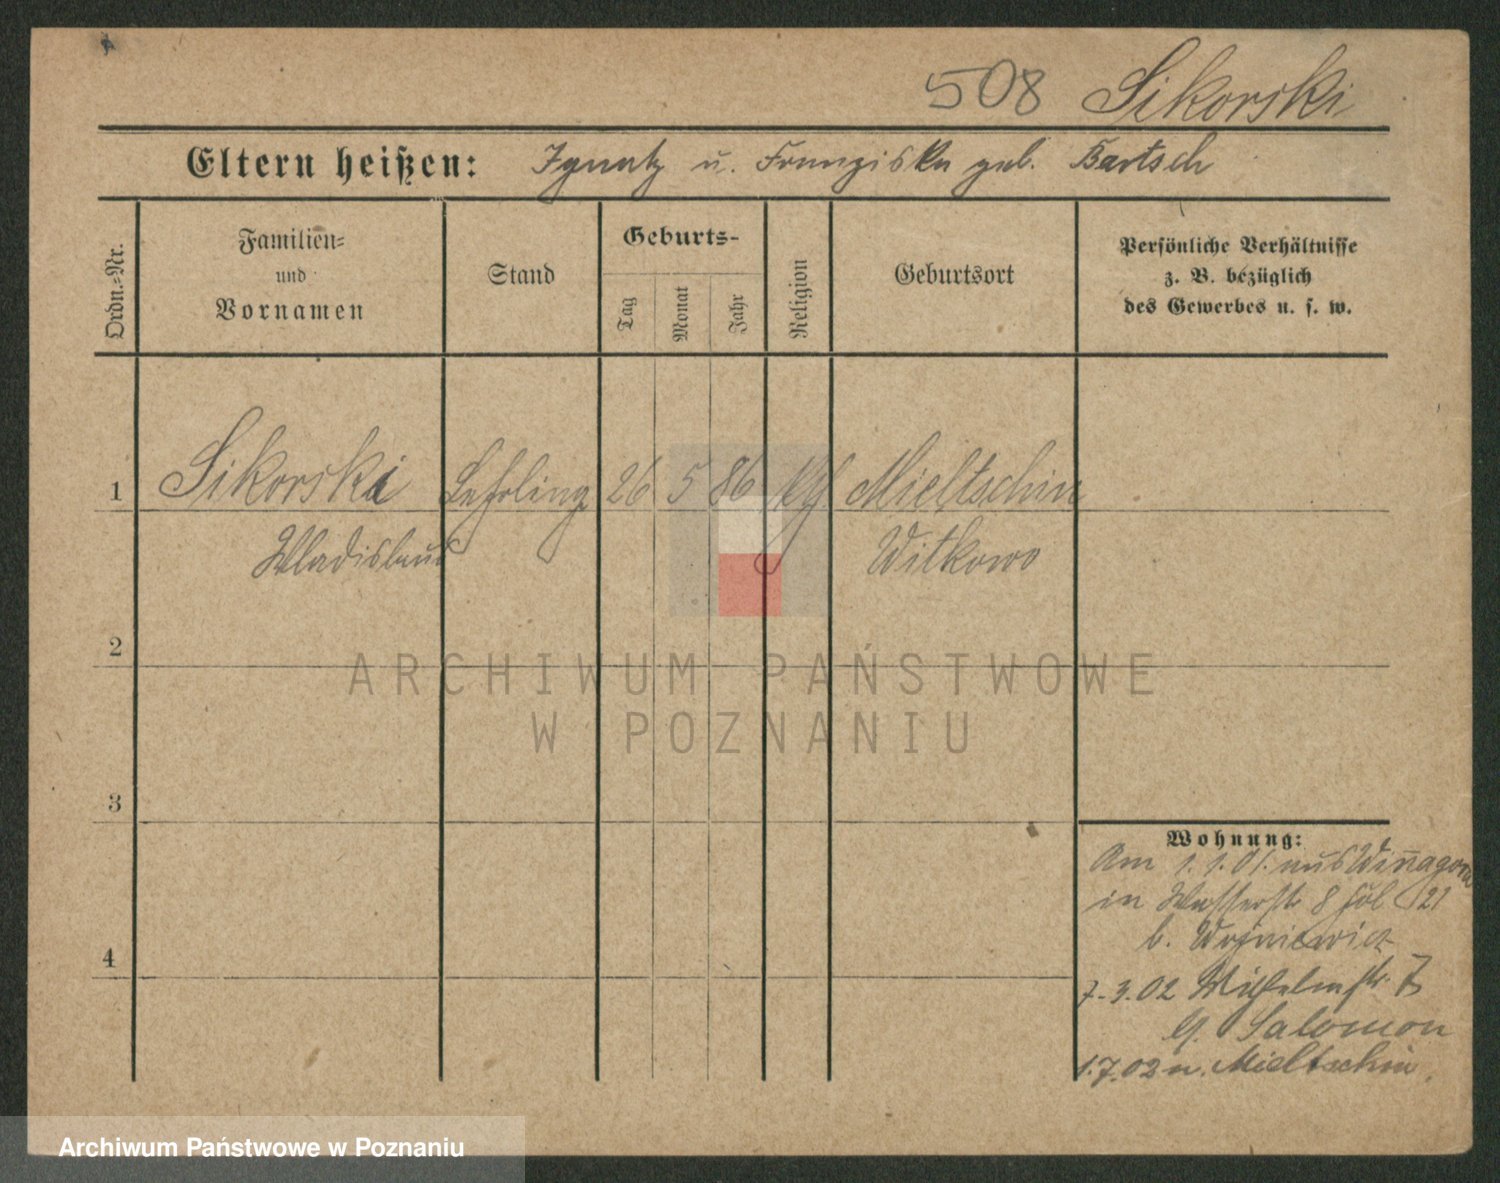 508 Sikorski
Eltern heißen: Ignatz u. Franziska geb. Bartsch
Ordn.-Nr.
Familien-
und
Vornamen
Stand
Geburts-
Tag
Monat
Jahr
Religion
Geburtsort
Persönliche Verhältnisse
z. B. bezüglich
des Gewerbes u. s. w.
1 Sikorski Lehrling 26 5 86 Mieltschin
Wladislaus Witkowo
2
ARCHIWUM PAŃSTWOWE
W POZNANIU
3
Wohnung:
Am 1.1.01. aus Winagora
in Wasserstr 8 21
b.
4
7.3.02 Wilhelmstr. 7
Salomon
1.7.02 n. Mieltschin.
Archiwum Państwowe w Poznaniu